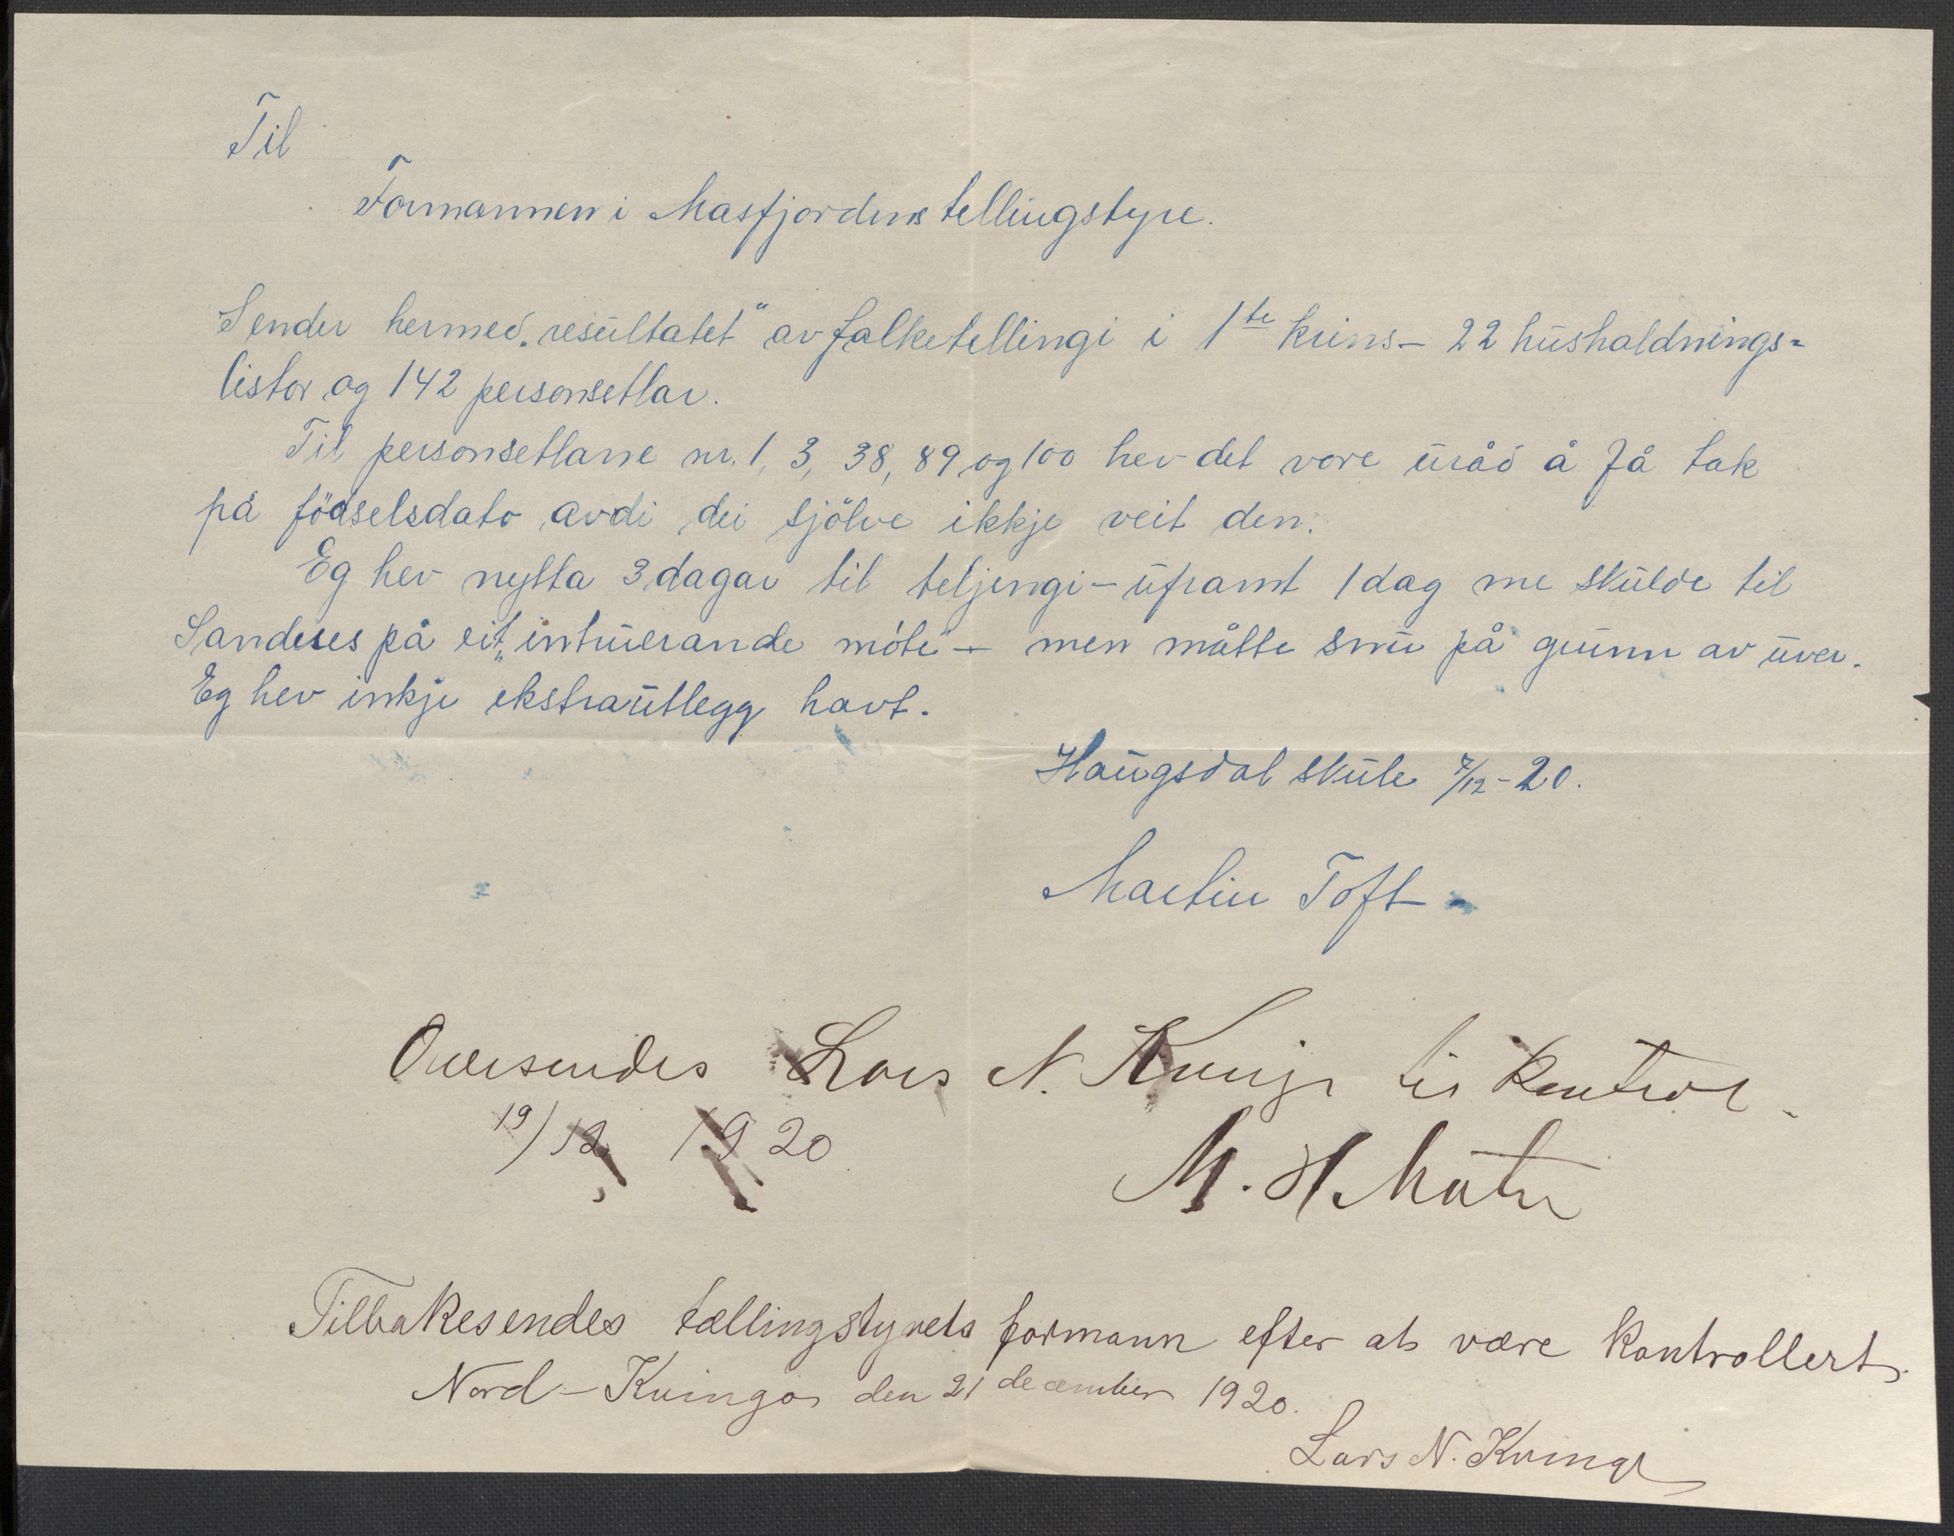 Til
Formannen i Masfjordens tellingstyre.
Sender hermed "resultatet" av folketellingi i 1ste krins - 22 hushaldnings-
listor og 142 personsetlar.
Til personsetlane nr. 1, 3, 38, 89 og 100 hev det vore uråd å få tak
på födselsdato avdi dei sjölve ikkje veit den.
Eg hev nytta 3 dagar til teljingi - uframt 1 dag me skulde til
Sandnes på eit "intruerande möte" - men måtte snu på grunn av uver.
Eg hev inkje ekstrautlegg havt.
Haugsdal skule 7/12-20.
Martin Toft
Oversendes Lars N. Kvinge til kontrol.
19/12 1920
M. H. Matre
Tilbakesendes tællingstyrets formann efter at være kontrollert.
Nord-Kvingo den 21 december 1920.
Lars N. Kvinge